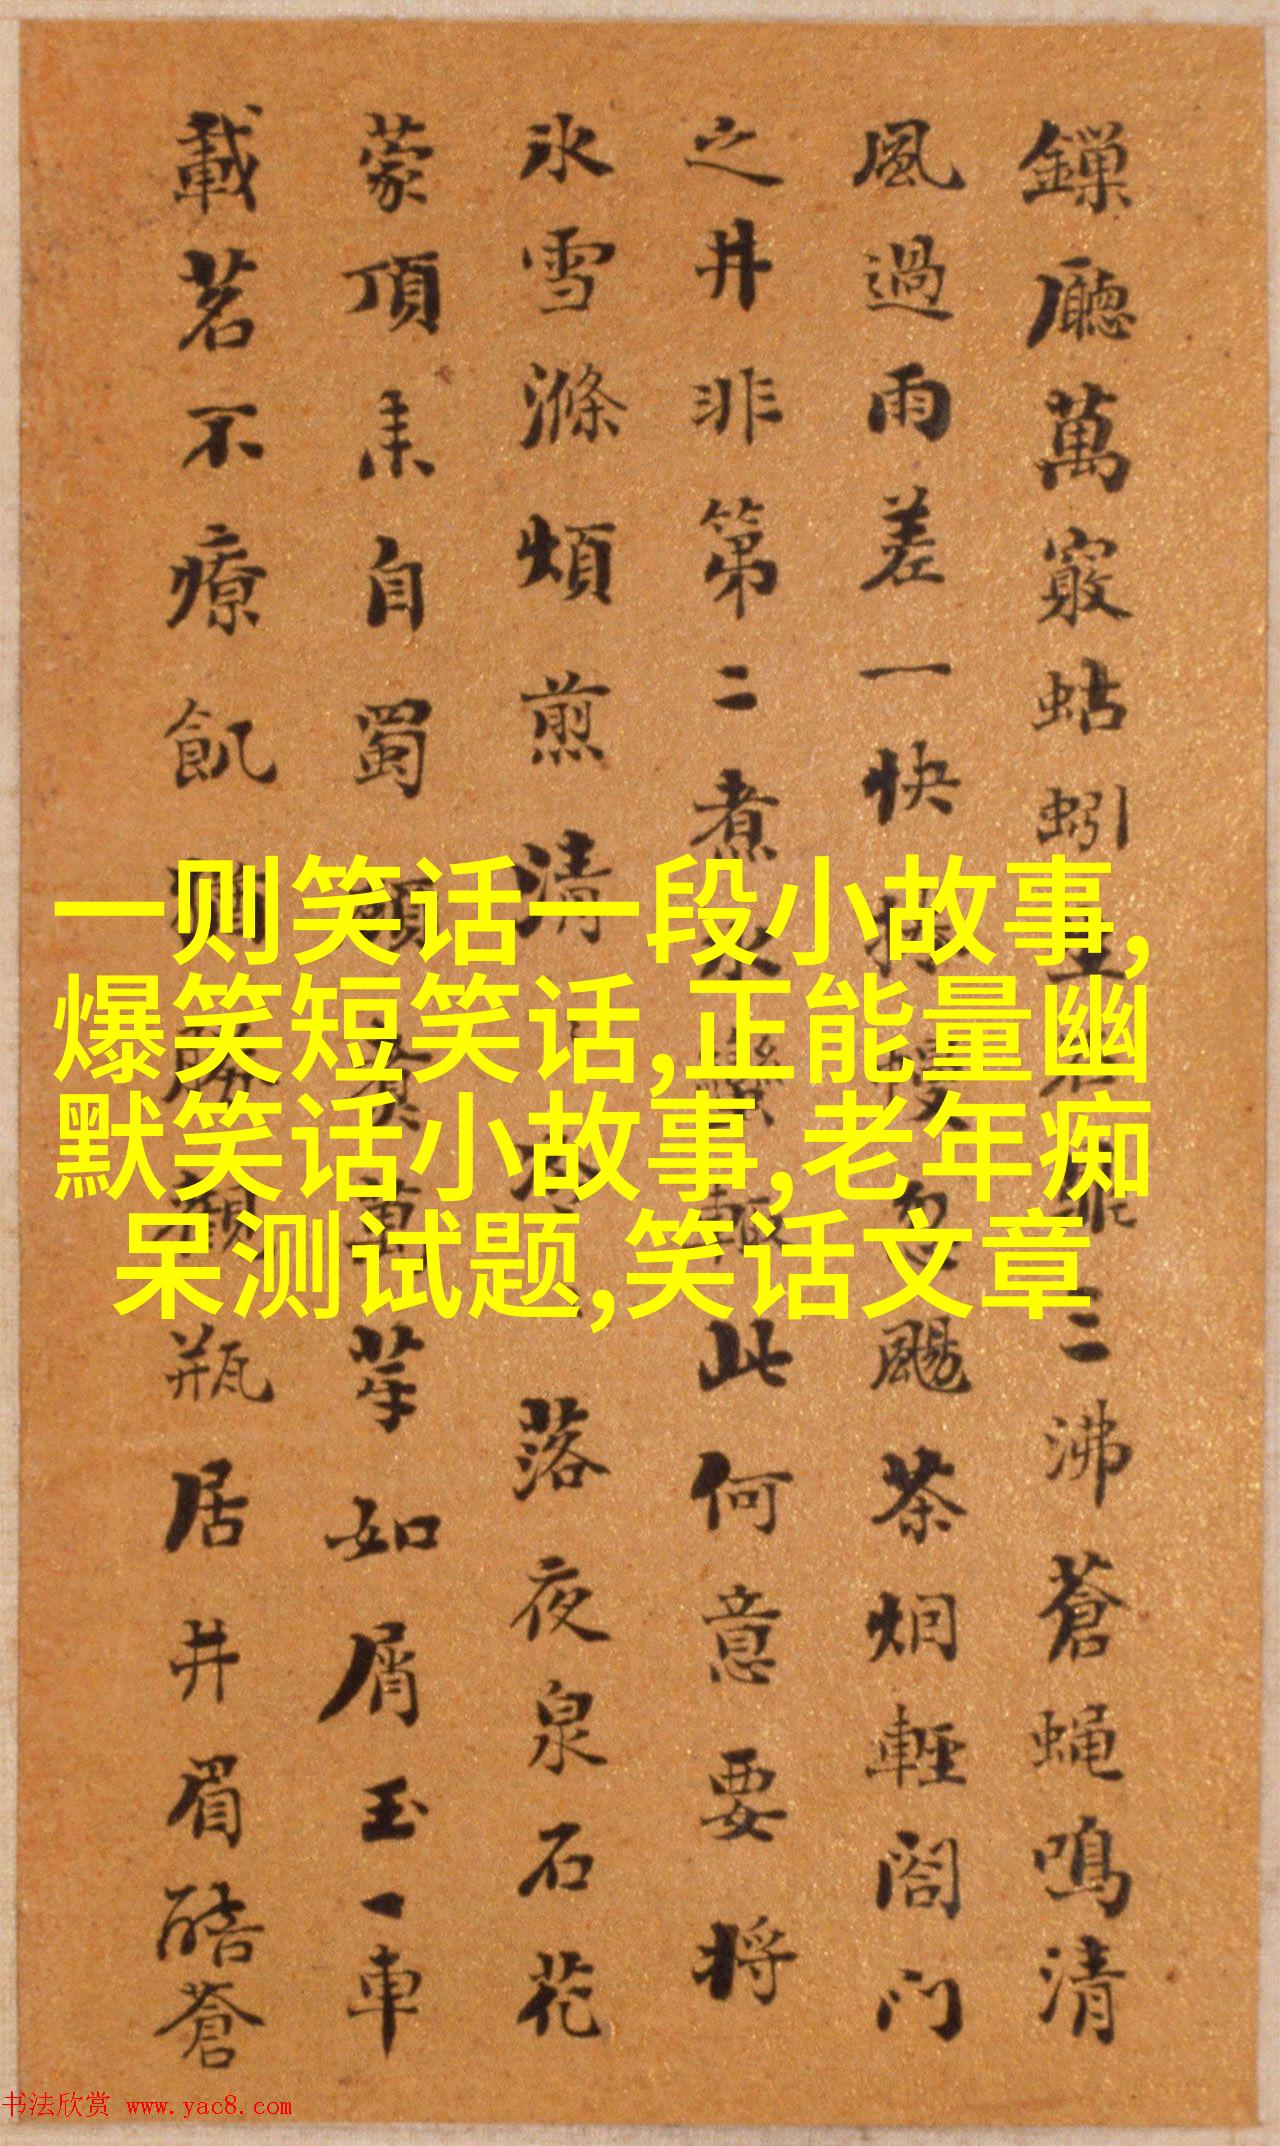 廳萬竅蛄蚓三沸蒼蠅鳴清
風過雨差一快颺茶烟輕閤門
之井非第二煮水此何意要將
氷雪滌煩煎清落夜泉石花
蒙頂来自蜀芽如屑玉一車
載茗不療飢瓶居井眉酷蒼
一则笑话一段小故事,
爆笑短笑话,正能量幽
默笑话小故事,老年痴
呆测试题,笑话文章
书法欣赏 www.yac8.com